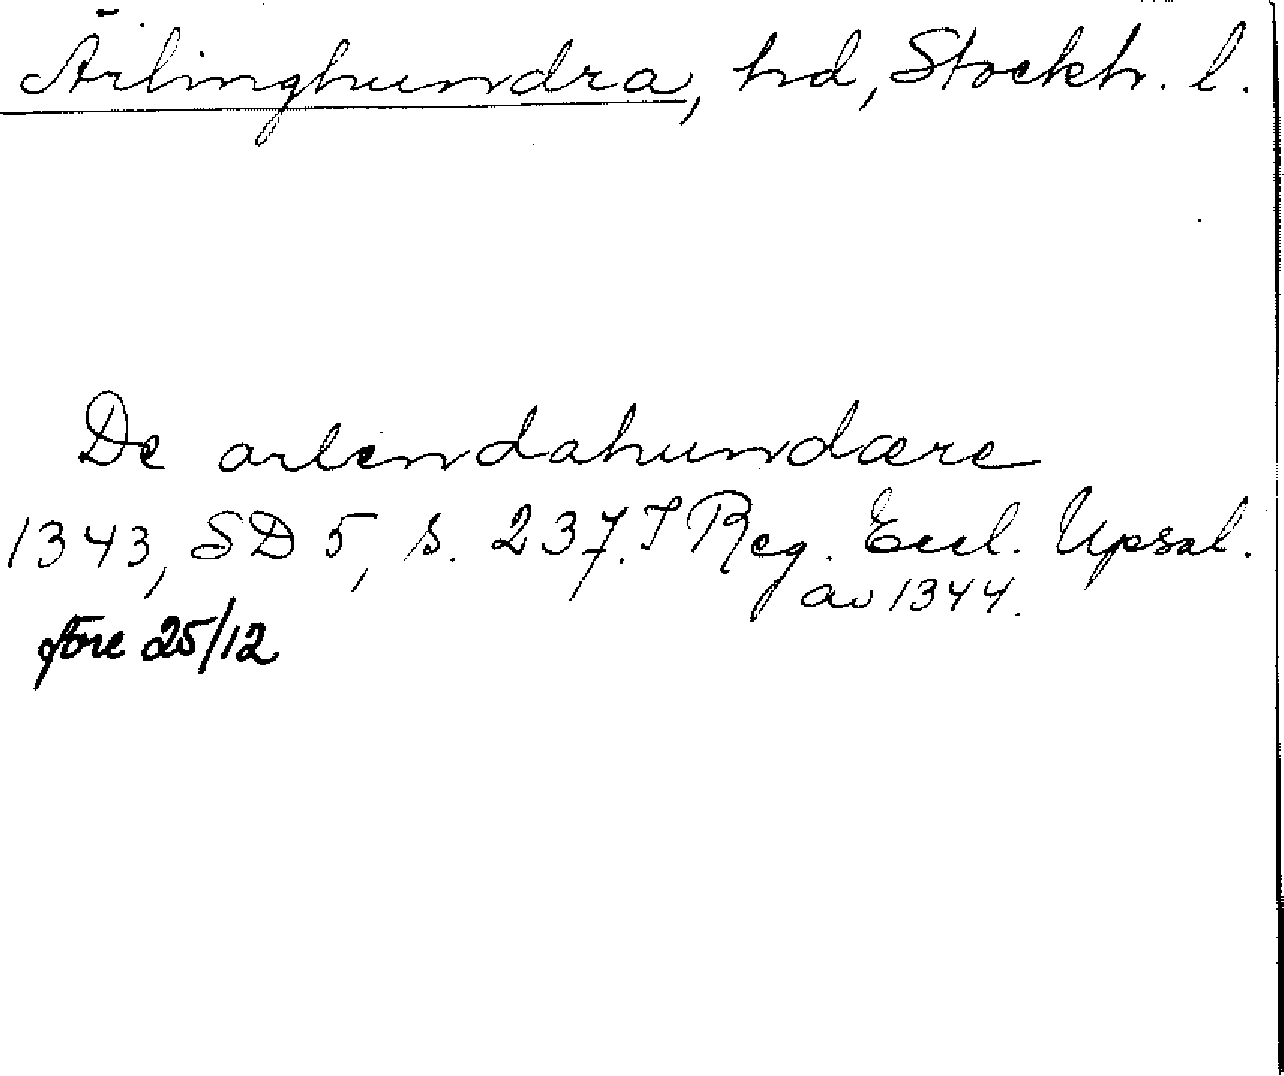 Ärlinghundra, hd, Stockh. l.
De arlendahundære
1343, SD 5, s. 237. I Reg. Eccl. Upsal.
av 1344.
före 25/12